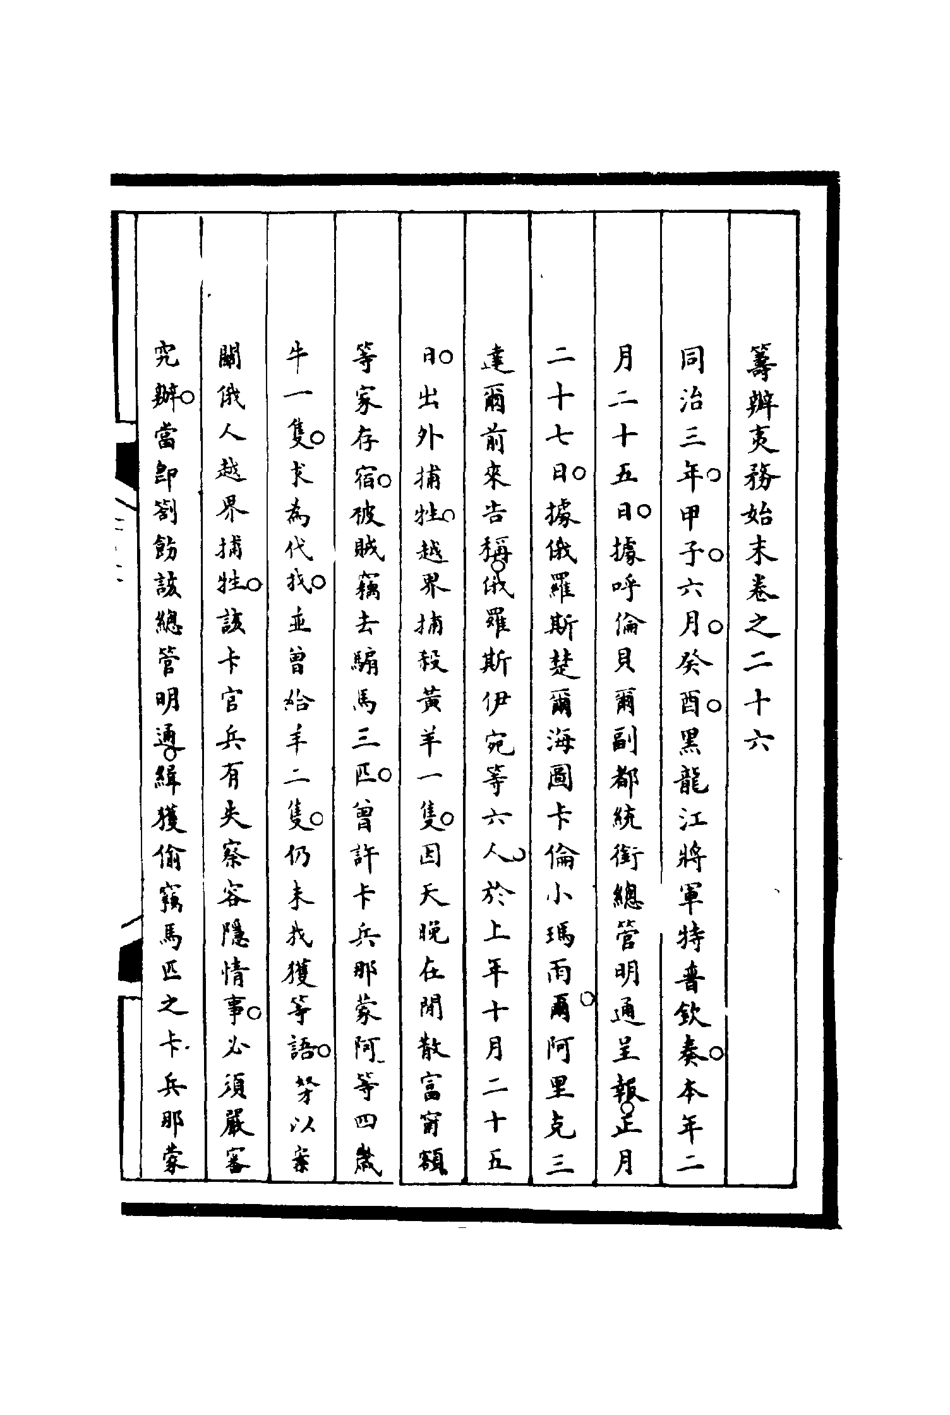 籌辦夷務始末卷之二十六
同治三年。甲子。六月。癸酉。黑龍江將軍特普欽奏。本年二
月二十五日。據呼倫貝爾副都統銜總管明通呈報。正月
二十七日。據俄羅斯楚爾海圖卡倫小瑪雨爾。阿里克三
達爾前來告稱。俄羅斯伊宛等六人。於上年十月二十五
日。出外捕牲。越界捕殺黃羊一隻。因天晚在閒散富甯額
等家存宿。被賊竊去騸馬三匹。曾許卡兵那蒙阿等四歲
牛一隻。求為代找。並曾給羊二隻。仍未找獲等語。奴才以案
關俄人越界捕牲。該卡官兵有失察容隱情事。必須嚴審
究辦。當即劄飭該總管明通。緝獲偷竊馬匹之卡兵那蒙